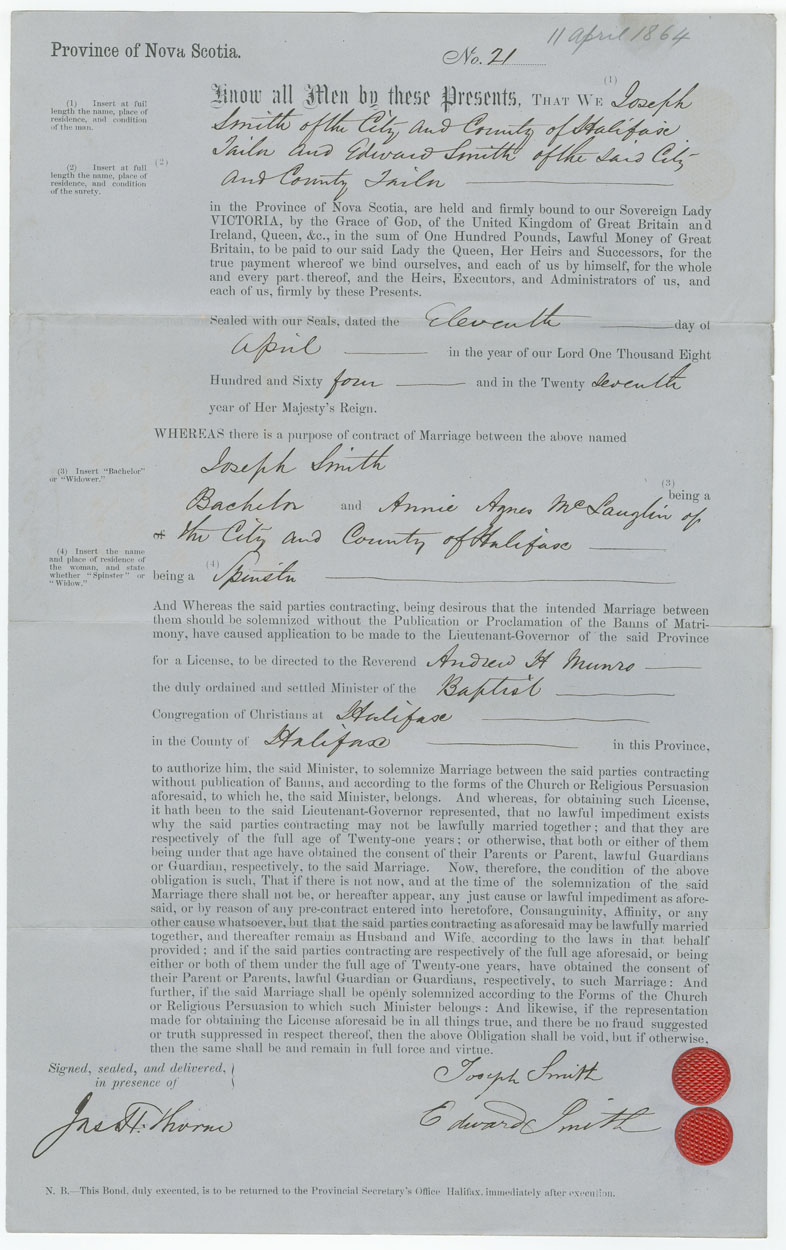 11 April 1864
Province of Nova Scotia.
No. 21
(1)
Know all Men by these Presents, THAT WE Joseph
(1) Insert at full
length the name, place of
residence, and condition
of the man.
Smith of the City and County of Halifax
Tailor and Edward Smith of the said City
(2)
(2) Insert at full
length the name, place of
residence, and condition
of the surety.
and County Tailor
in the Province of Nova Scotia, are held and firmly bound to our Sovereign Lady
VICTORIA, by the Grace of GOD, of the United Kingdom of Great Britain and
Ireland, Queen, &c., in the sum of One Hundred Pounds, Lawful Money of Great
Britain, to be paid to our said Lady the Queen, Her Heirs and Successors, for the
true payment whereof we bind ourselves, and each of us by himself, for the whole
and every part thereof, and the Heirs, Executors, and Administrators of us, and
each of us, firmly by these Presents.
Sealed with our Seals, dated the Eleventh day of
April in the year of our Lord One Thousand Eight
Hundred and Sixty four and in the Twenty seventh
year of Her Majesty's Reign.
WHEREAS there is a purpose of contract of Marriage between the above named
Joseph Smith
(3) Insert "Bachelor"
or "Widower."
(3)
being a
Bachelor and Annie Agnes McLauglin of
of the City and County of Halifax
(4) Insert the name
and place of residence of
the woman, and state
whether "Spinster" or
"Widow."
(4)
being a Spinster
And Whereas the said parties contracting, being desirous that the intended Marriage between
them should be solemnized without the Publication or Proclamation of the Banns of Matri-
mony, have caused application to be made to the Lieutenant-Governor of the said Province
for a License, to be directed to the Reverend Andrew H Munro
the duly ordained and settled Minister of the Baptist
Congregation of Christians at Halifax
in the County of Halifax in this Province,
to authorize him, the said Minister, to solemnize Marriage between the said parties contracting
without publication of Banns, and according to the forms of the Church or Religious Persuasion
aforesaid, to which he, the said Minister, belongs. And whereas, for obtaining such License,
it hath been to the said Lieutenant-Governor represented, that no lawful impediment exists
why the said parties contracting may not be lawfully married together; and that they are
respectively of the full age of Twenty-one years; or otherwise, that both or either of them
being under that age have obtained the consent of their Parents or Parent, lawful Guardians
or Guardian, respectively, to the said Marriage. Now, therefore, the condition of the above
obligation is such, That if there is not now, and at the time of the solemnization of the said
Marriage there shall not be, or hereafter appear, any just cause or lawful impediment as afore-
said, or by reason of any pre-contract entered into heretofore, Consanguinity, Affinity, or any
other cause whatsoever, but that the said parties contracting as aforesaid may be lawfully married
together, and thereafter remain as Husband and Wife, according to the laws in that behalf
provided; and if the said parties contracting are respectively of the full age aforesaid, or being
either or both of them under the full age of Twenty-one years, have obtained the consent of
their Parent or Parents, lawful Guardian or Guardians, respectively, to such Marriage: And
further, if the said Marriage shall be openly solemnized according to the Forms of the Church
or Religious Persuasion to which such Minister belongs: And likewise, if the representation
made for obtaining the License aforesaid be in all things true, and there be no fraud suggested
or truth suppressed in respect thereof, then the above Obligation shall be void, but if otherwise,
then the same shall be and remain in full force and virtue.
Signed, sealed, and delivered,
in presence of
Joseph Smith
Jas H. Thorne
Edward Smith
N. B.—This Bond, duly executed, is to be returned to the Provincial Secretary's Office Halifax, immediately after execution.